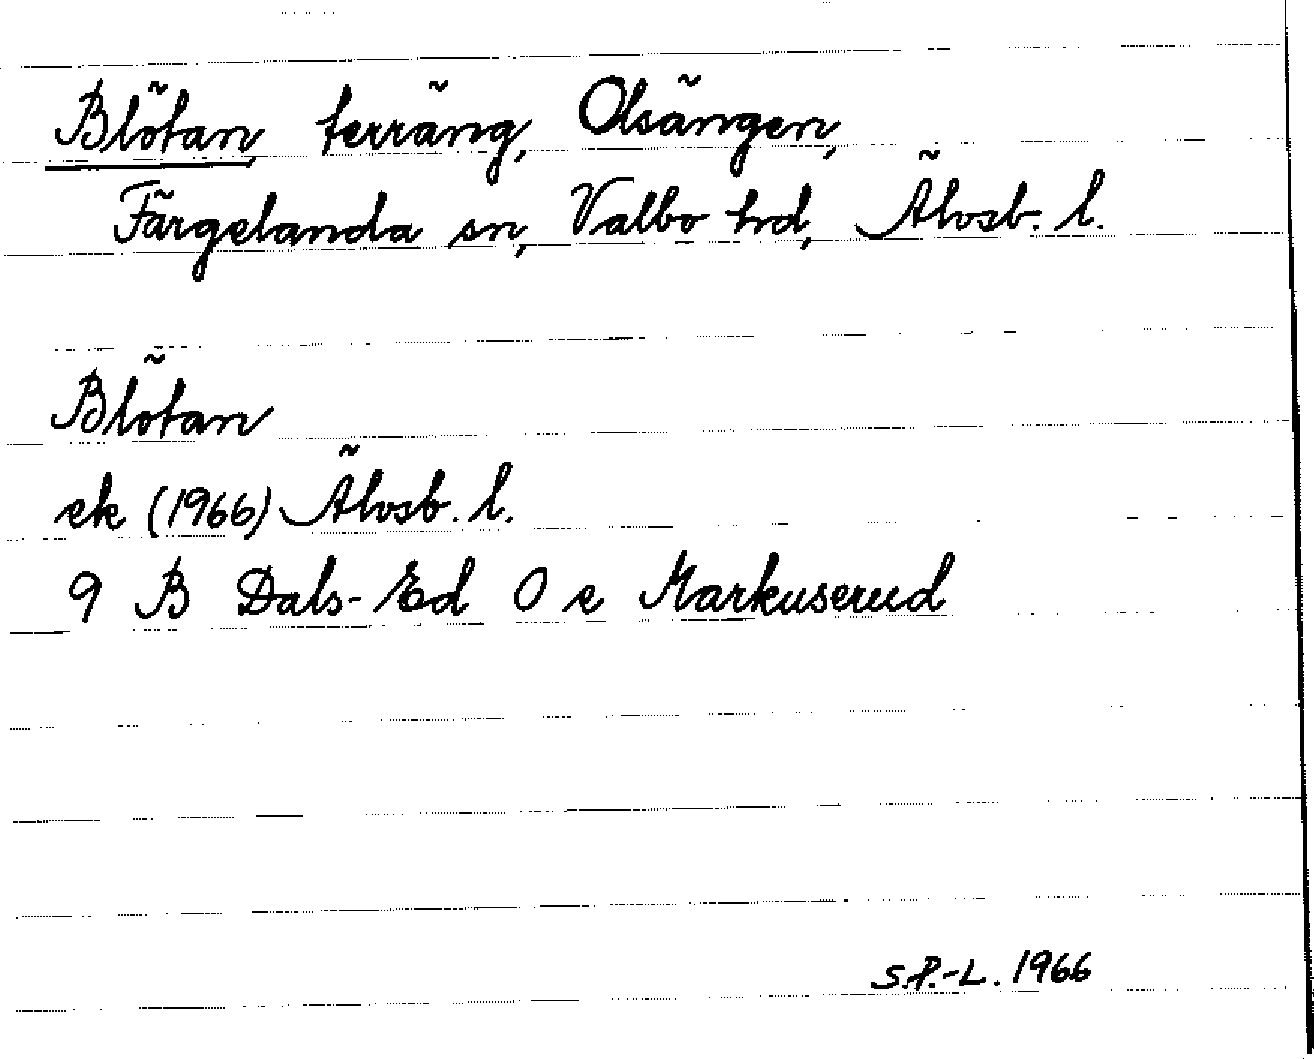 Blötan, terräng, Olsängen,
Färgelanda sn, Valbo hd, Älvsb. l.
Blötan
ek (1966) Älvsb. l.
9 B Dals-Ed 0 e Markuserud
S.P.-L. 1966